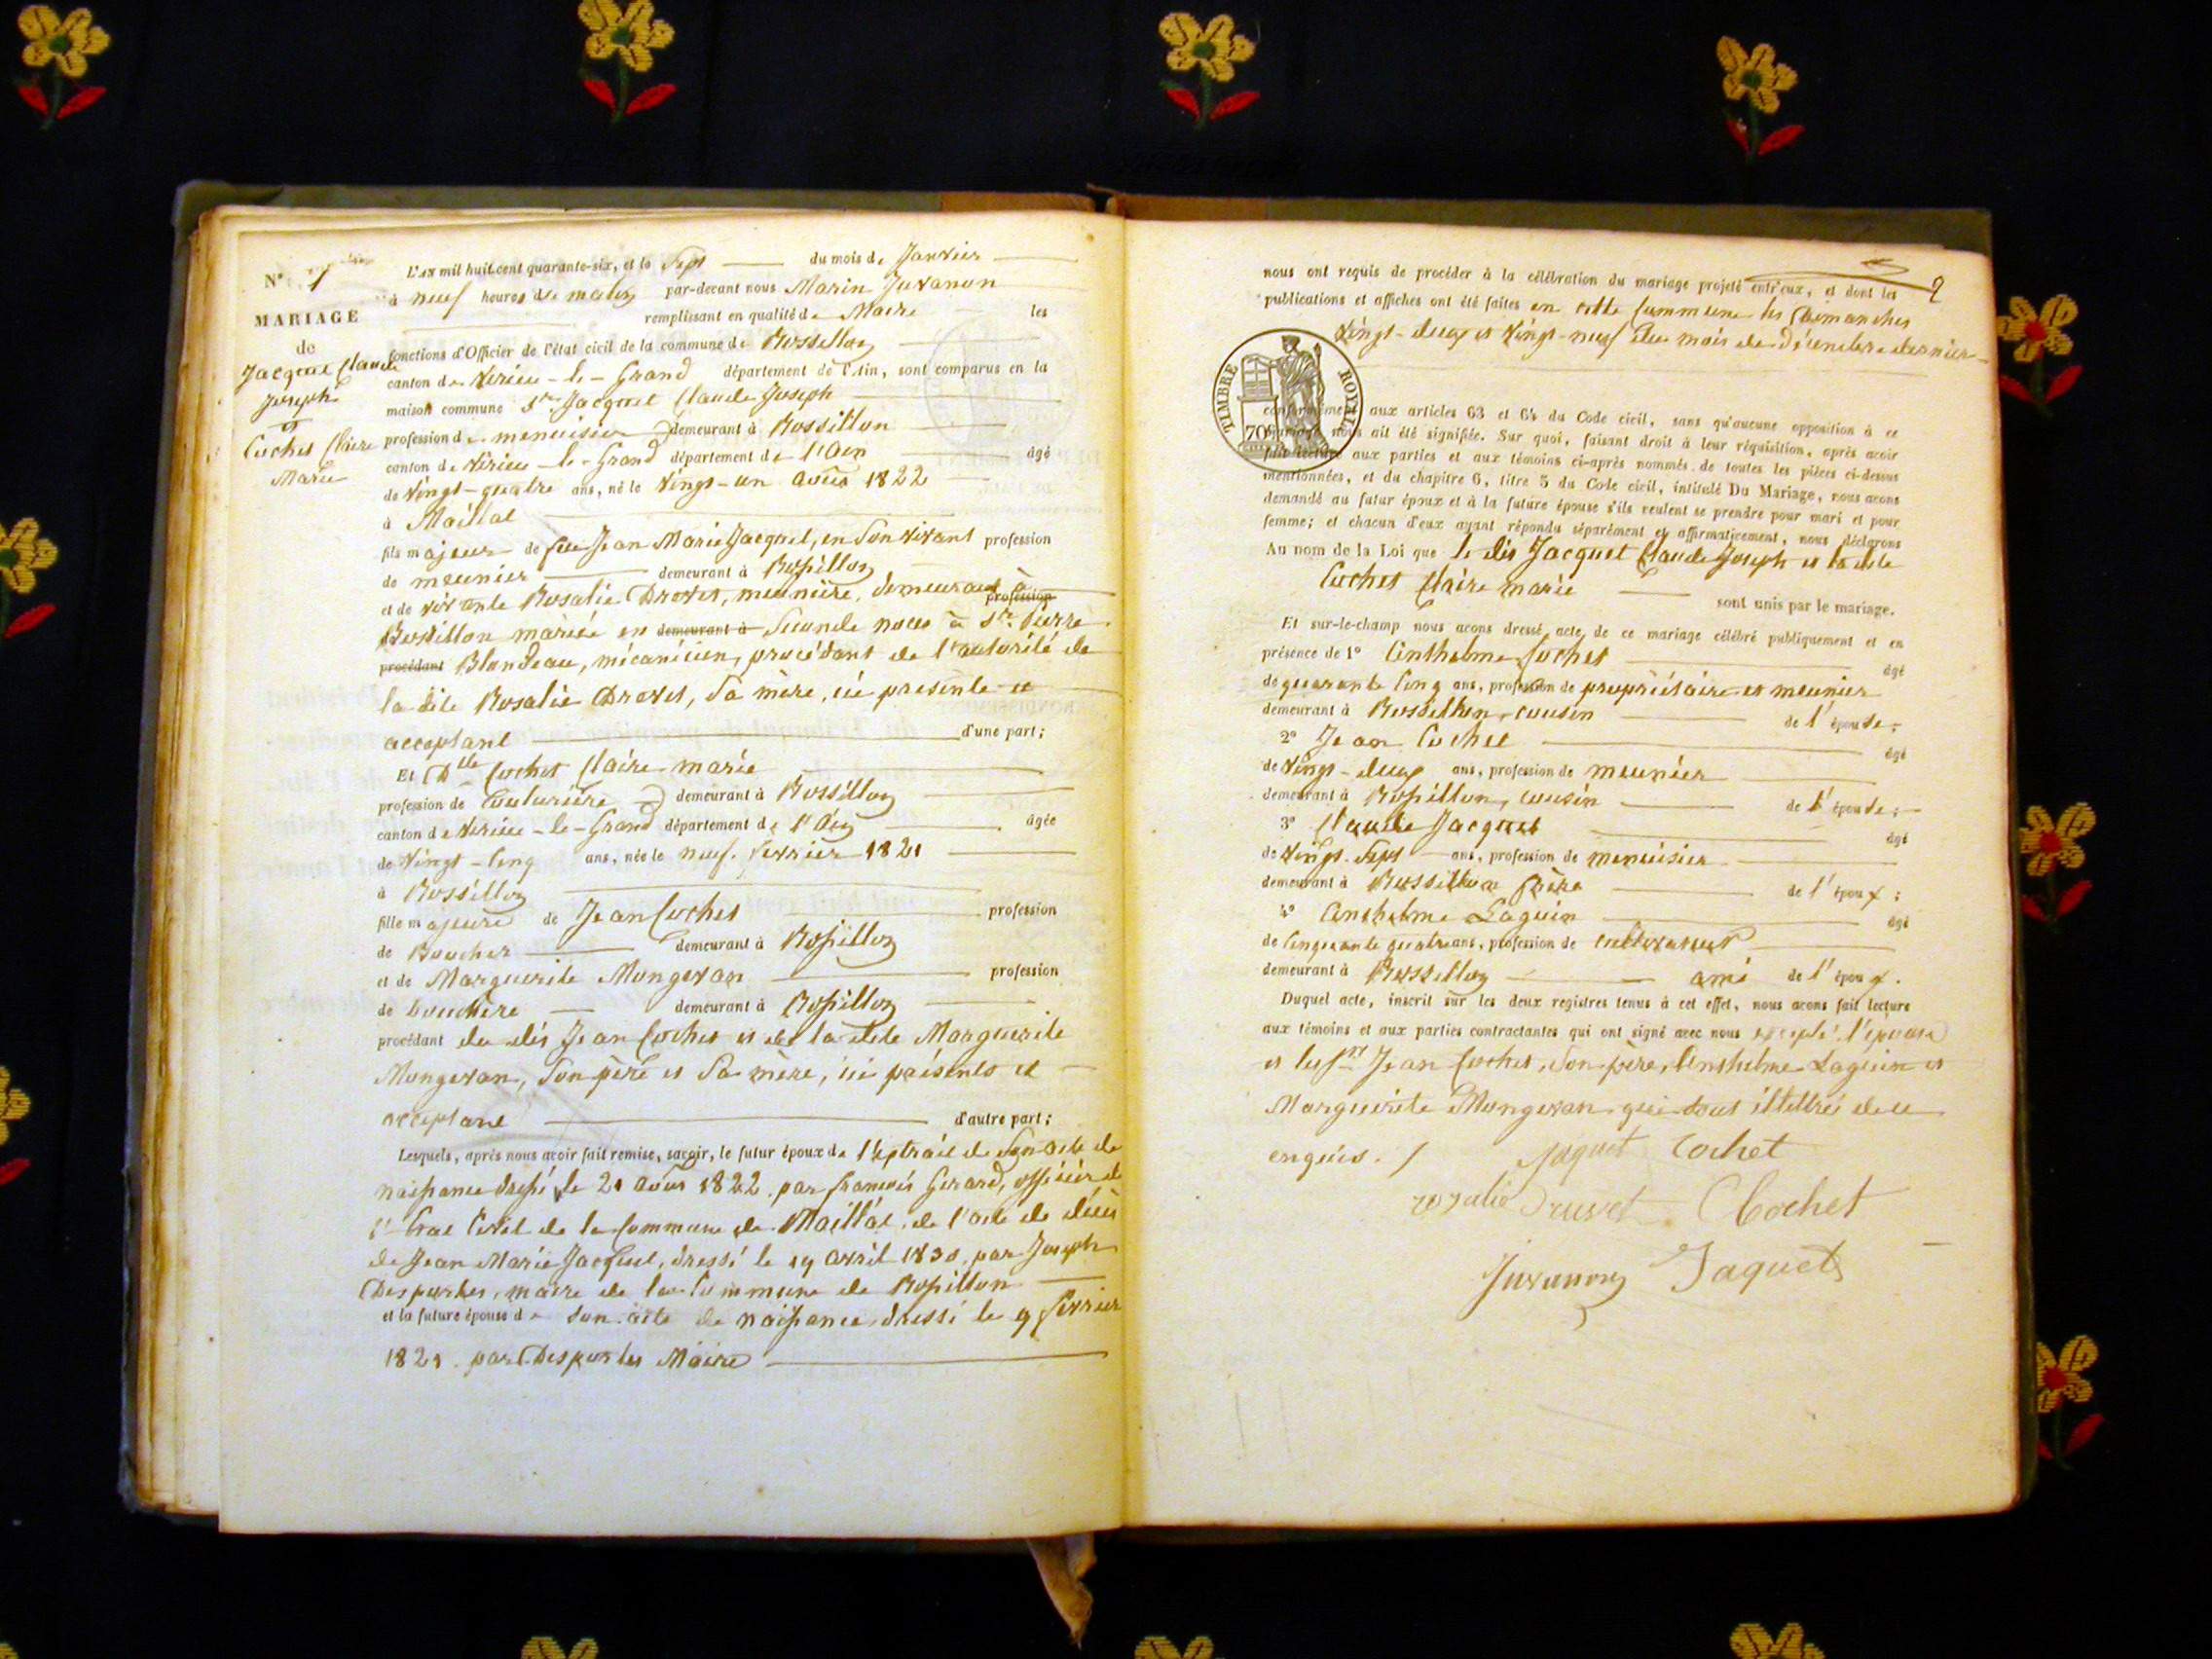 N° 1
MARIAGE
de
Jacquet Claude
Joseph
et
Cochet Claire
Marie
L'an mil huit cent quarante-six, et le Sept du mois de Janvier
à neuf heures du matin par-devant nous Marin Juvanon
remplissant en qualité de Maire les
fonctions d'Officier de l'état civil de la commune de Rossillon
canton de Virieu-le-Grand département de l'Ain, sont comparus en la
maison commune Sr Jacquet Claude Joseph
profession de menuisier demeurant à Rossillon
canton de Virieu-le-Grand département de l'Ain âgé
de Vingt-quatre ans, né le vingt-un août 1822
à Maillat
fils majeur de feu Jean Marie Jacquet, en Son vivant profession
de meunier demeurant à Rossillon
et de vivante Rosalie Drovet, meunière, demeurant à profession
Rossillon mariée en demeurant à Seconde noces à Sr Pierre
procédant Blandeau, mécanicien, procédant de l'autorité de
la dite Rosalie Drovet, Sa mère, ici presente et
acceptant d'une part;
Et Dlle Cochet Claire marie
profession de Couturière demeurant à Rossillon
canton de Virieu-le-Grand département de l'Ain âgée
de Vingt-Cinq ans, née le neuf fevrier 1821
à Rossillon
fille majeure de Jean Cochet profession
de Boucher demeurant à Rossillon
et de Marguerite Mongevan profession
de bouchère demeurant à Rossillon
procédant du dit Jean Cochet et de la dite Marguerite
Mongevan, Son père et Sa mère, ici présents et
acceptant d'autre part;
Lesquels, après nous avoir fait remise, savoir, le futur époux de l'extrait de Son acte de
naissance dressé le 21 août 1822 par francois Gerard, officier de
l'Etat Civil de la Commune de Maillat, de l'acte de décès
de Jean Marie Jacquet, dressé le 19 avril 1830, par Joseph
Desportes, maire de la Commune de Rossillon
et la future épouse de Son acte de naissance, dressé le 9 fevrier
1821 par Desportes Maire
2
nous ont requis de procéder à la célébration du mariage projeté entr'eux, et dont les
publications et affiches ont été faites en cette Commune les Dimanches
Vingt-deux et Vingt-neuf du mois de décembre dernier
TIMBRE ROYAL
70
conformément aux articles 63 et 64 du Code civil, sans qu'aucune opposition à ce
mariage nous ait été signifiée. Sur quoi, faisant droit à leur réquisition, après avoir
fait lecture aux parties et aux témoins ci-après nommés de toutes les pièces ci-dessus
mentionnées, et du chapitre 6, titre 5 du Code civil, intitulé Du Mariage, nous avons
demandé au futur époux et à la future épouse s'ils veulent se prendre pour mari et pour
femme; et chacun d'eux ayant répondu séparément et affirmativement, nous déclarons
Au nom de la Loi que le dit Jacquet Claude Joseph et la dite
Cochet Claire marie sont unis par le mariage.
Et sur-le-champ nous avons dressé acte de ce mariage célébré publiquement et en
présence de 1° Anthelme Cochet âgé
de quarante Cinq ans, profession de propriétaire et meunier
demeurant à Rossillon, cousin de l'épouse;
2° Jean Cochet âgé
de Vingt-deux ans, profession de meunier
demeurant à Rossillon, cousin de l'épouse;
3° Claude Jacquet âgé
de Vingt-Sept ans, profession de menuisier
demeurant à Rossillon frère de l'époux;
4° Anthelme Laguin âgé
de Cinquante quatre ans, profession de cultivateur
demeurant à Rossillon ami de l'époux.
Duquel acte, inscrit sur les deux registres tenus à cet effet, nous avons fait lecture
aux témoins et aux parties contractantes qui ont signé avec nous excepté l'épouse
et les Srs Jean Cochet, Son père, Anthelme Laguin et
Marguerite Mongevan qui sont illettrés de ce
enquis. /
Jaquet Cochet
rosalie Druvet Cochet
Juvanon Jaquet